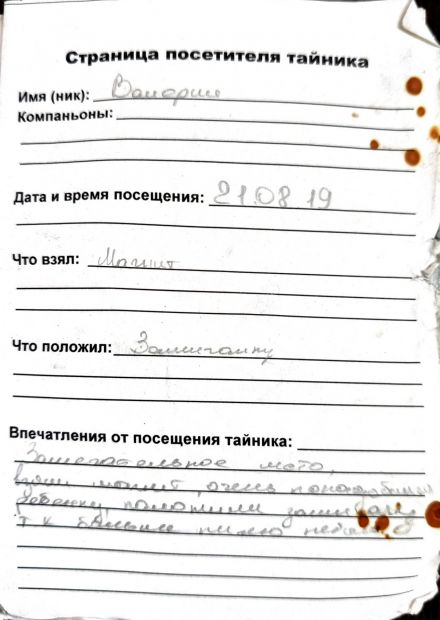 Страница посетителя тайника
Имя (ник): Валерии
Компаньоны:
Дата и время посещения: 21.08 19
Что взял: Магнит
Что положил: Зажигалку
Впечатления от посещения тайника:
Замечательное место,
взяли магнит, очень понравился
ребенку, положили зажигалку
т к больше ничего не